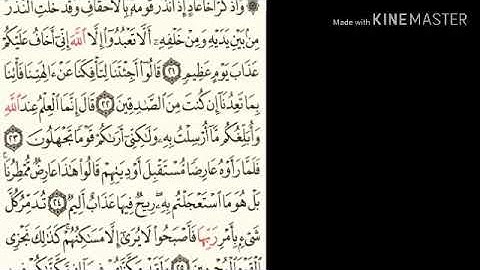 وَاذْكُرْ أَخَا عَادٍ إِذْ أَنذَرَ قَوْمَهُ بِالْأَحْقَافِ وَقَدْ خَلَتِ النُّذُرُ
مِن بَيْنِ يَدَيْهِ وَمِنْ خَلْفِهِ أَلَّا تَعْبُدُوا إِلَّا اللَّهَ إِنِّي أَخَافُ عَلَيْكُمْ
عَذَابَ يَوْمٍ عَظِيمٍ ٢١ قَالُوا أَجِئْتَنَا لِتَأْفِكَنَا عَنْ آلِهَتِنَا فَأْتِنَا
بِمَا تَعِدُنَا إِن كُنتَ مِنَ الصَّادِقِينَ ٢٢ قَالَ إِنَّمَا الْعِلْمُ عِندَ اللَّهِ
وَأُبَلِّغُكُم مَّا أُرْسِلْتُ بِهِ وَلَٰكِنِّي أَرَاكُمْ قَوْمًا تَجْهَلُونَ ٢٣
فَلَمَّا رَأَوْهُ عَارِضًا مُّسْتَقْبِلَ أَوْدِيَتِهِمْ قَالُوا هَٰذَا عَارِضٌ مُّمْطِرُنَا
بَلْ هُوَ مَا اسْتَعْجَلْتُم بِهِ رِيحٌ فِيهَا عَذَابٌ أَلِيمٌ ٢٤ تُدَمِّرُ كُلَّ
شَيْءٍ بِأَمْرِ رَبِّهَا فَأَصْبَحُوا لَا يُرَىٰ إِلَّا مَسَاكِنُهُمْ كَذَٰلِكَ نَجْزِي
الْقَوْمَ الْمُجْرِمِينَ ٢٥ وَلَقَدْ مَكَّنَّاهُمْ فِيمَا إِن مَّكَّنَّاكُمْ
Made with KINEMASTER